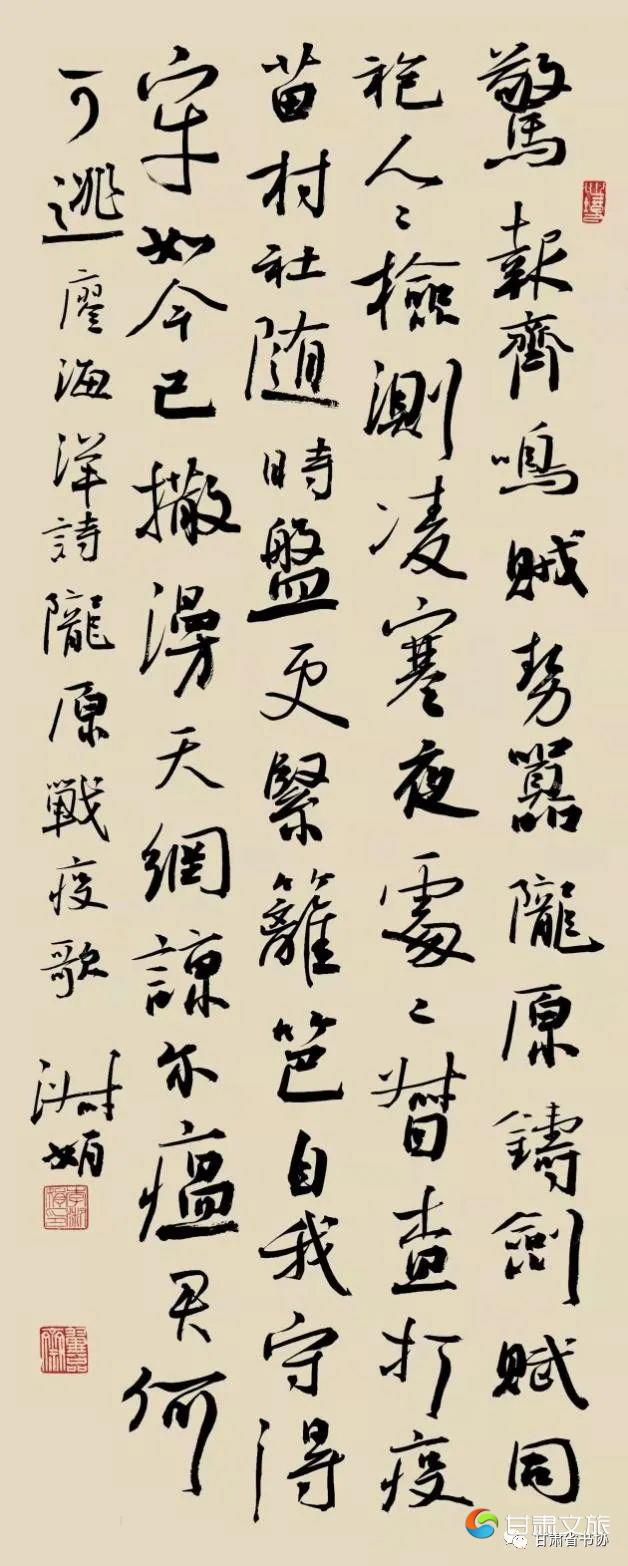 驚報齊鳴賊勢囂隴原鑄劍賦同
袍人〻檢測凌寒夜處〻督查打疫
苗村社随時盤更緊籬笆自我守得
牢如今已撒漫天網諒尔瘟君何
可逃廖海洋詩隴原戰疫歌
甘肃文旅
甘肃省书协